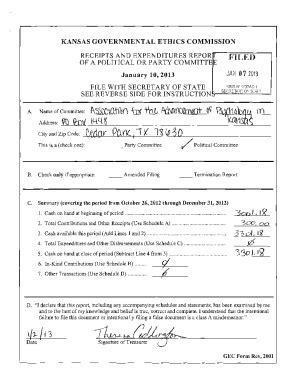 KANSAS GOVERNMENTAL ETHICS COMMISSION
RECEIPTS AND EXPENDITURES REPORT
OF A POLITICAL OR PARTY COMMITTEE
FILED
January 10, 2013
JAN 07 2013
FILE WITH SECRETARY OF STATE
SEE REVERSE SIDE FOR INSTRUCTIONS
SECRETARY OF STATE
A. Name of Committee: Association for the Advancement of Psychology in Kansas
Address: PO Box 448
City and Zip Code: Cedar Park, TX 78630
This is a (check one): Party Committee ✓ Political Committee
B. Check only if appropriate: Amended Filing Termination Report
C. Summary (covering the period from October 26, 2012 through December 31, 2012)
1. Cash on hand at beginning of period 3001.18
2. Total Contributions and Other Receipts (Use Schedule A) 300.00
3. Cash available this period (Add Lines 1 and 2) 3301.18
4. Total Expenditures and Other Disbursements (Use Schedule C) 0
5. Cash on hand at close of period (Subtract Line 4 from 3) 3301.18
6. In-Kind Contributions (Use Schedule B)
7. Other Transactions (Use Schedule D)
D. "I declare that this report, including any accompanying schedules and statements, has been examined by me
and to the best of my knowledge and belief is true, correct and complete. I understand that the intentional
failure to file this document or intentionally filing a false document is a class A misdemeanor."
1/2/13
Date Signature of Treasurer
GEC Form Rev, 2001